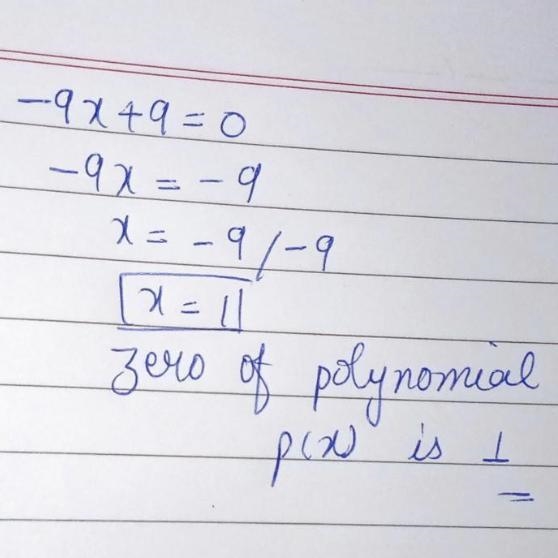 -9x+9=0
-9x = -9
x = -9/-9
x = 1
Zero of polynomial
p(x) is 1